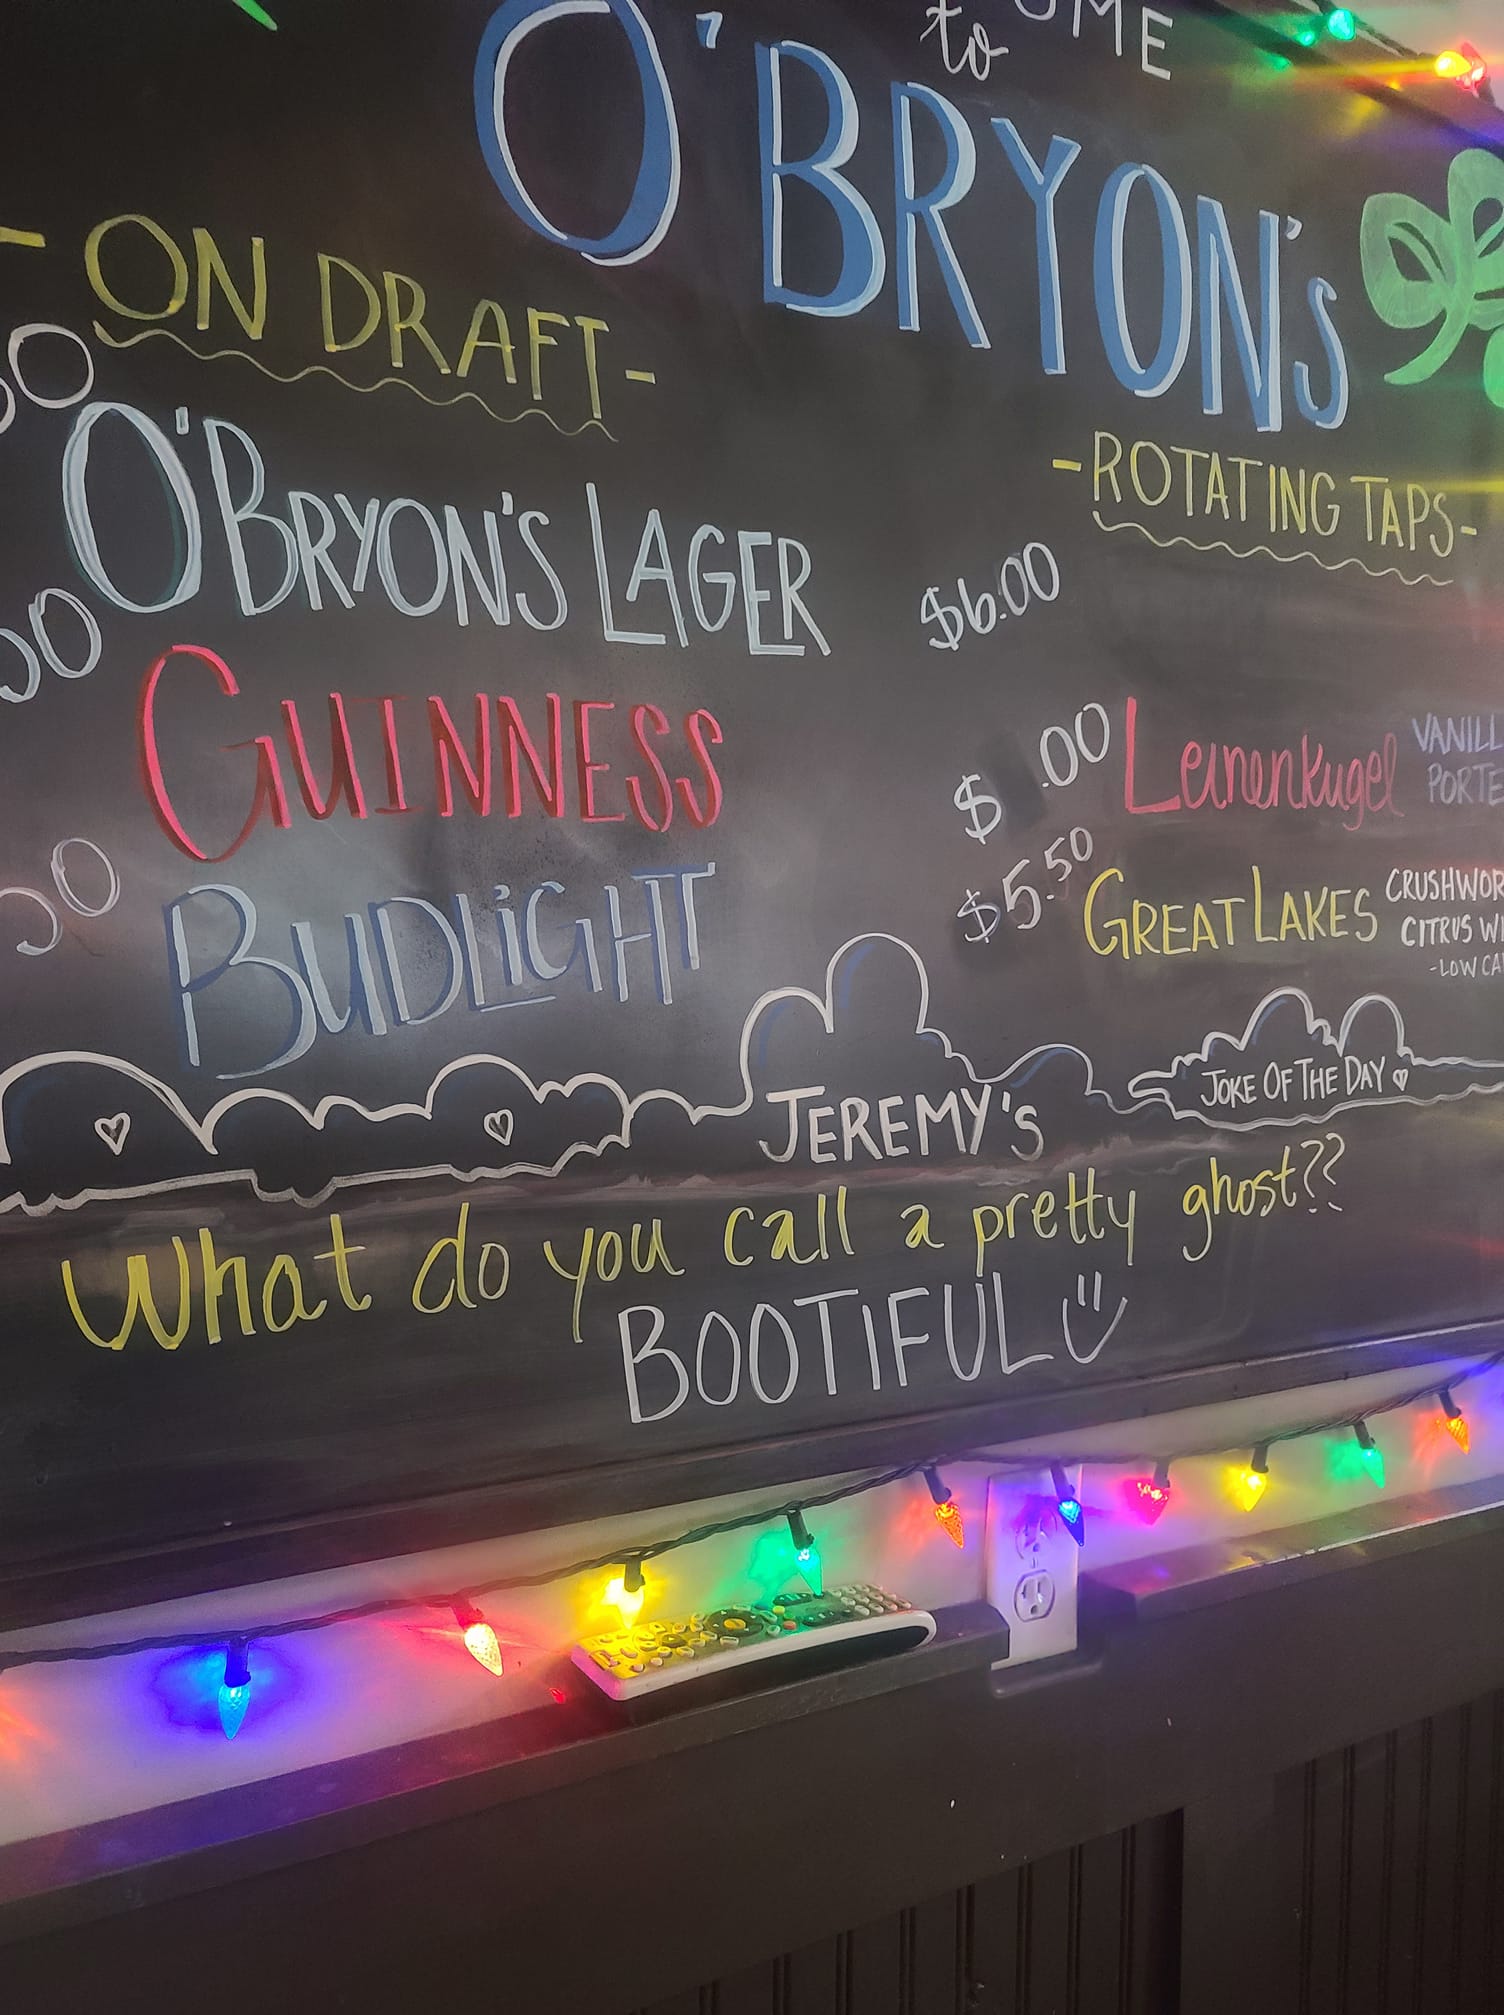 to
O'BRYON's
-ON DRAFT-
O'BRYON'S LAGER
GUINNESS
BUDLIGHT
-ROTATING TAPS-
$6.00
$ .00 Leinenkugel
$5.50 GREAT LAKES
CITRUS
-LOW
JEREMY'S
JOKE OF THE DAY
What do you call a pretty ghost??
BOOTIFUL